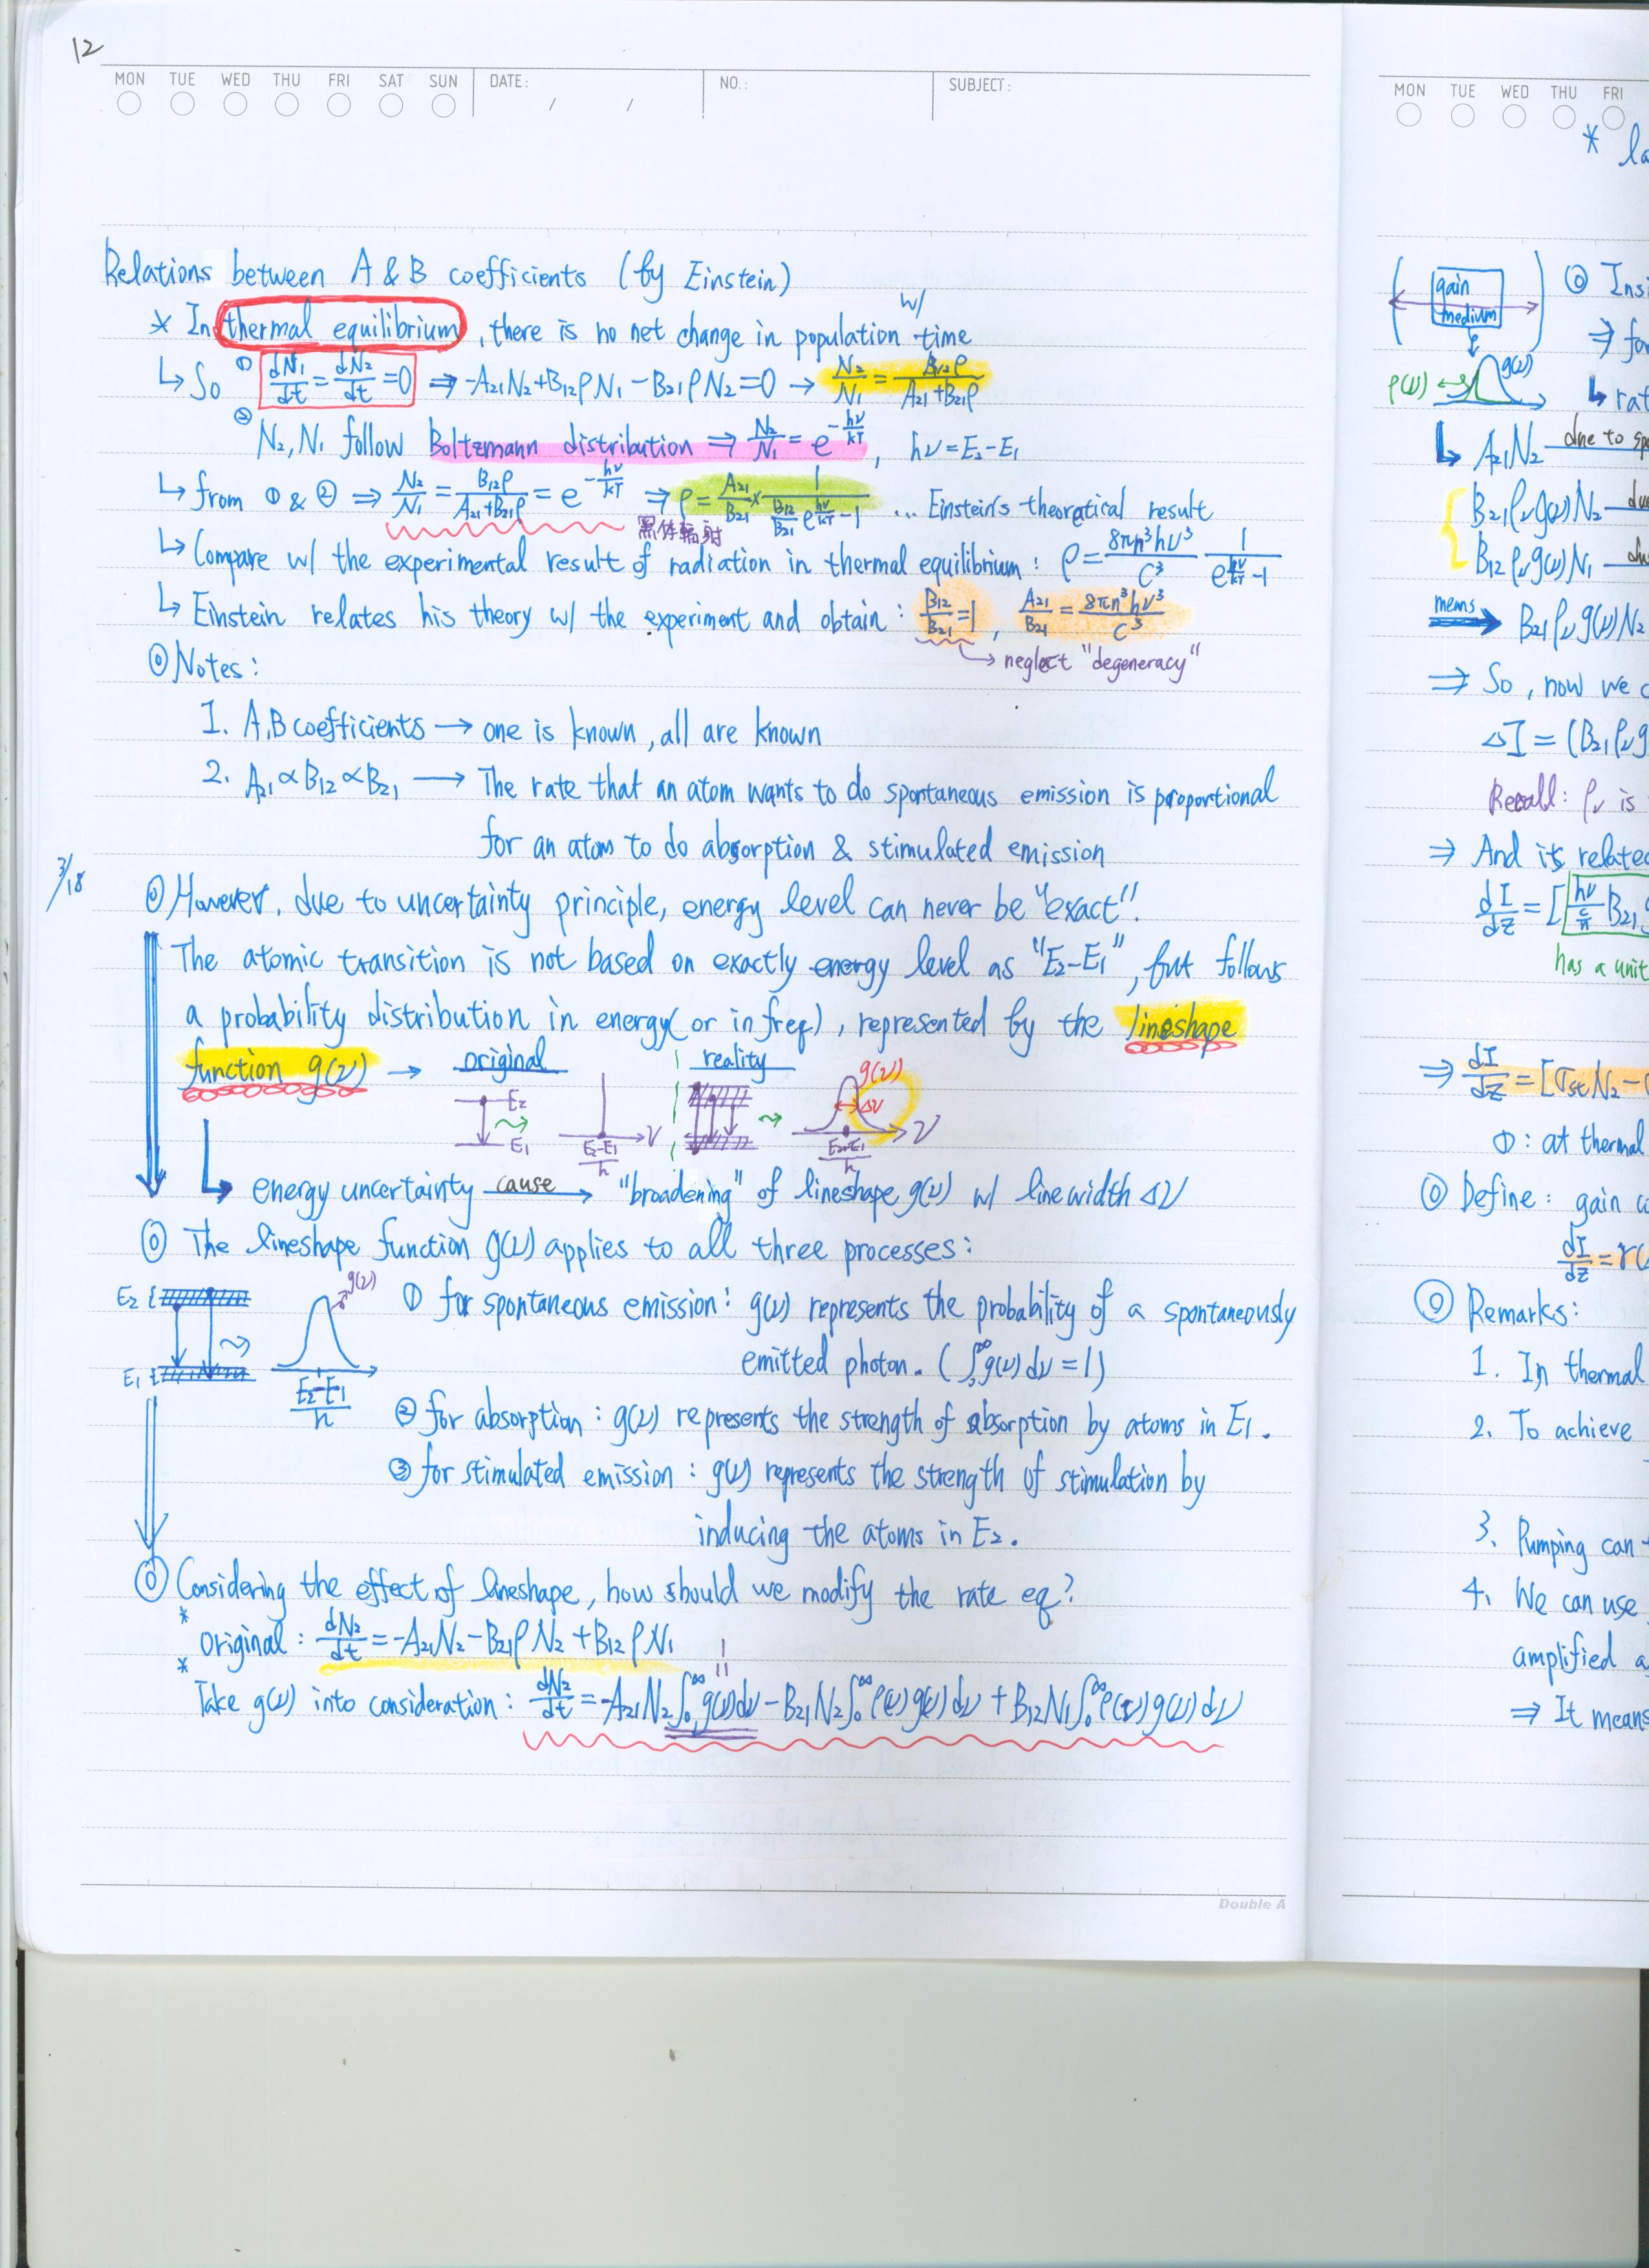 12
MON TUE WED THU FRI SAT SUN DATE: / / NO.: SUBJECT:
Relations between A & B coefficients (by Einstein)
* In thermal equilibrium, there is no net change in population w/ time
↳ So ① dN₁/dt = dN₂/dt = 0 ⇒ -A₂₁N₂+B₁₂ρN₁-B₂₁ρN₂=0 → N₂/N₁ = B₁₂ρ/(A₂₁+B₂₁ρ)
② N₂, N₁ follow Boltzmann distribution ⇒ N₂/N₁ = e^(-hν/kT), hν=E₂-E₁
↳ from ① & ② ⇒ N₂/N₁ = B₁₂ρ/(A₂₁+B₂₁ρ) = e^(-hν/kT) ⇒ ρ = A₂₁/B₂₁ × 1/((B₁₂/B₂₁)e^(hν/kT)-1) ... Einstein's theoretical result
黑体輻射
↳ Compare w/ the experimental result of radiation in thermal equilibrium: ρ = 8πn³hν³/c³ 1/(e^(hν/kT)-1)
↳ Einstein relates his theory w/ the experiment and obtain: B₁₂/B₂₁=1, A₂₁/B₂₁ = 8πn³hν³/c³
→ neglect "degeneracy"
◎ Notes:
1. A,B coefficients → one is known, all are known
2. A₂₁ ∝ B₁₂ ∝ B₂₁ → The rate that an atom wants to do spontaneous emission is proportional
for an atom to do absorption & stimulated emission
3/18
◎ However, due to uncertainty principle, energy level can never be "exact"!
The atomic transition is not based on exactly energy level as "E₂-E₁", but follows
a probability distribution in energy (or in freq), represented by the lineshape
function g(ν) → original reality
g(ν)
E₂ Δν
E₁ (E₂-E₁)/h ν (E₂-E₁)/h ν
↳ energy uncertainty cause → "broadening" of lineshape g(ν) w/ linewidth Δν
◎ The lineshape function g(ν) applies to all three processes:
E₂ g(ν)
E₁
(E₂-E₁)/h
① for spontaneous emission: g(ν) represents the probability of a spontaneously
emitted photon. (∫₀^∞ g(ν)dν = 1)
② for absorption: g(ν) represents the strength of absorption by atoms in E₁.
③ for stimulated emission: g(ν) represents the strength of stimulation by
inducing the atoms in E₂.
◎ Considering the effect of lineshape, how should we modify the rate eq?
* original: dN₂/dt = -A₂₁N₂-B₂₁ρN₂+B₁₂ρN₁
1
* Take g(ν) into consideration: dN₂/dt = -A₂₁N₂∫₀^∞g(ν)dν - B₂₁N₂∫₀^∞ρ(ν)g(ν)dν + B₁₂N₁∫₀^∞ρ(ν)g(ν)dν
Double A
MON TUE WED THU FRI
*
gain
medium
ρ(ν) g(ν)
◎
⇒
↳
↳ A₂₁N₂ due to
B₂₁ρᵥg(ν)N₂
B₁₂ρᵥg(ν)N₁
means → B₂₁ρᵥg(ν)N₂
⇒ So, now we
ΔI = (B₂₁ρᵥ
Recall: ρᵥ is
⇒ And it's related
dI/dz = [hν/(c/n) B₂₁
has a unit
⇒ dI/dz = [σₛₜN₂ -
①: at thermal
◎ Define: gain
dI/dz = γ(
◎ Remarks:
1. In thermal
2. To achieve
3. Pumping can
4. We can use
amplified
⇒ It means